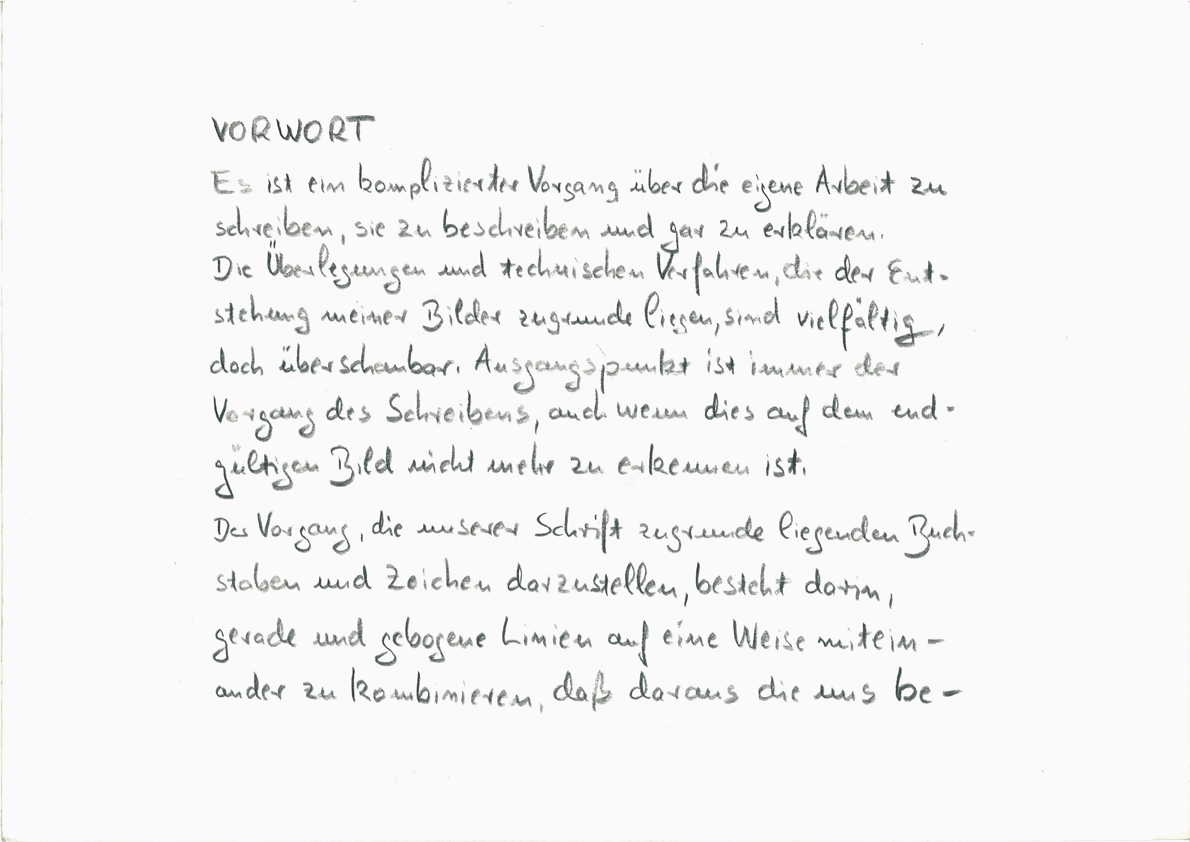 VORWORT
Es ist ein komplizierter Vorgang über die eigene Arbeit zu
schreiben, sie zu beschreiben und gar zu erklären.
Die Überlegungen und technischen Verfahren, die der Ent-
stehung meiner Bilder zugrunde liegen, sind vielfältig,
doch überschaubar. Ausgangspunkt ist immer der
Vorgang des Schreibens, auch wenn dies auf dem end-
gültigen Bild nicht mehr zu erkennen ist.
Der Vorgang, die unserer Schrift zugrunde liegenden Buch-
staben und Zeichen darzustellen, besteht darin,
gerade und gebogene Linien auf eine Weise mitein-
ander zu kombinieren, daß daraus die uns be-